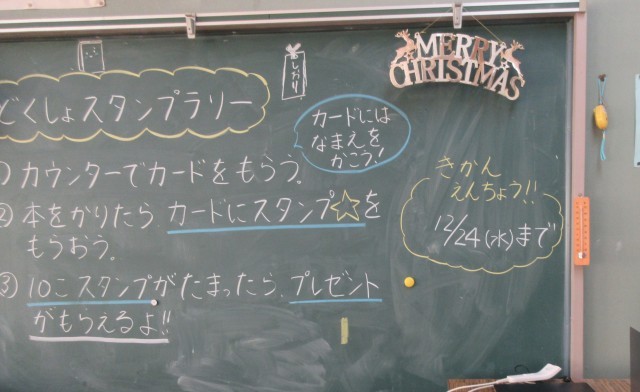 しおり
MERRY
CHRISTMAS
どくしょスタンプラリー
カードには
なまえを
かこう！
① カウンターでカードをもらう。
② 本をかりたら カードにスタンプ☆を
もらおう。
③ 10こスタンプがたまったら、プレゼント
がもらえるよ!!
きかん
えんちょう!!
12/24(水)まで